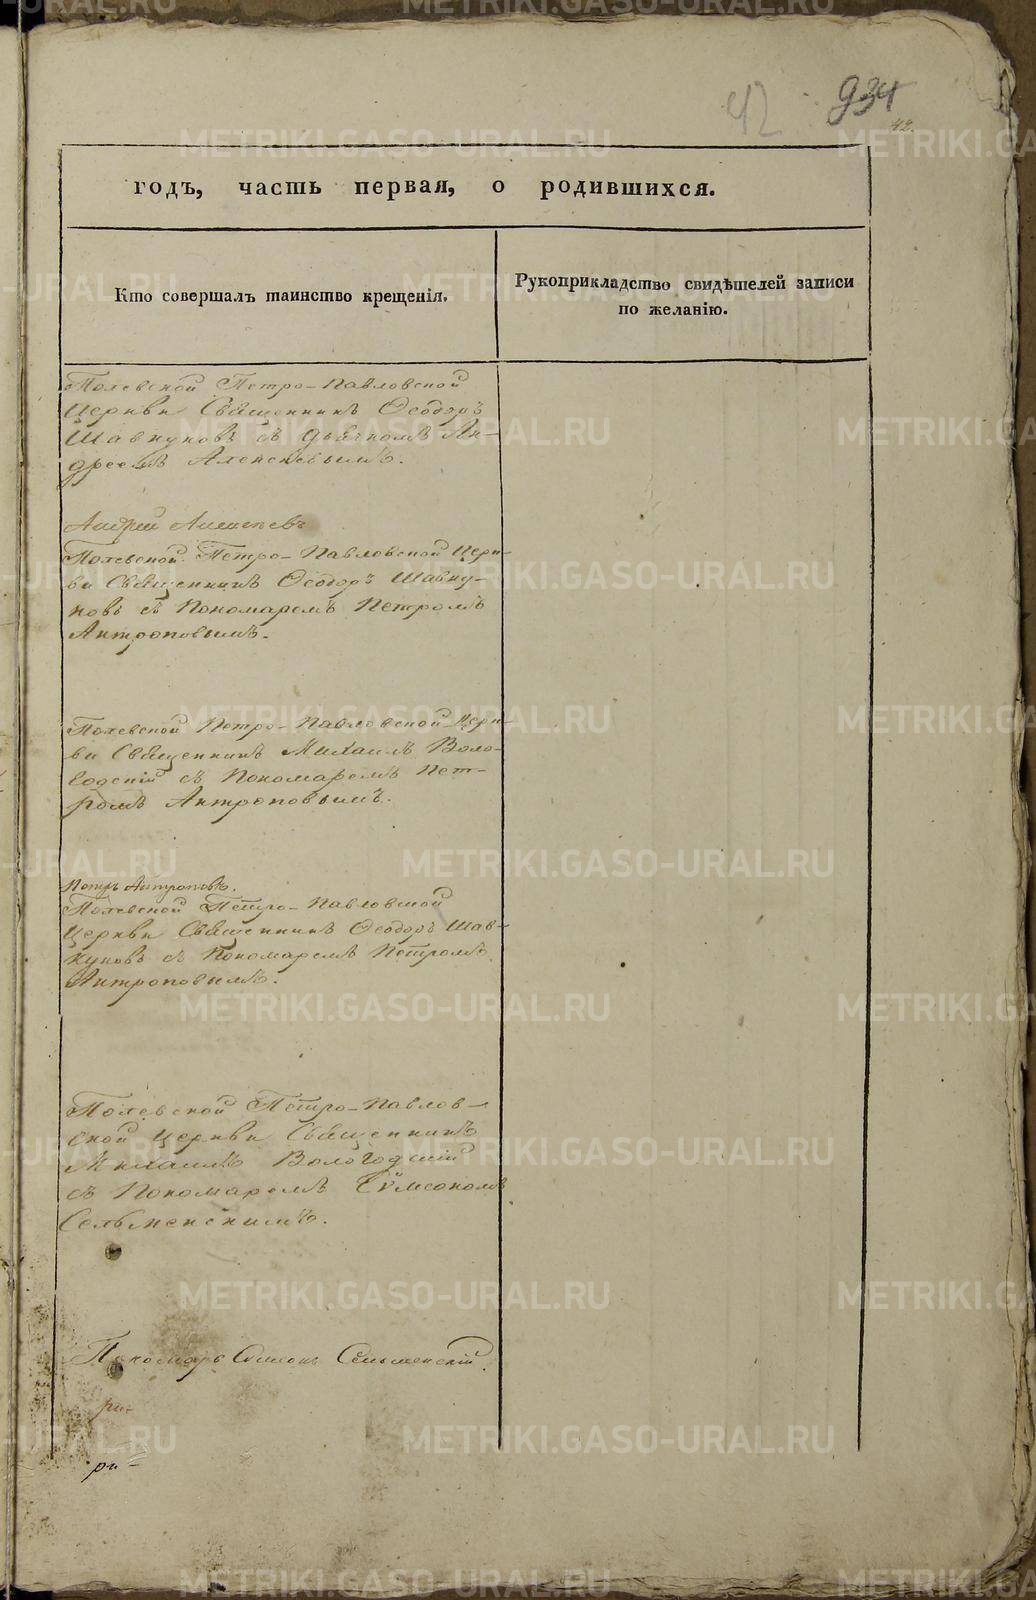 42
934
42.
годъ, часть первая, о родившихся.
Кто совершалъ таинство крещенія.
Рукоприкладство свидѣтелей записи
по желанію.
Полевской Петро-Павловской
Церкви Священникъ Ѳеодоръ
Шавкуновъ съ дьячкомъ Ан-
дреемъ Алексѣевымъ.
Андрей Алексѣевъ
Полевской Петро-Павловской Церк-
ви Священникъ Ѳеодоръ Шавку-
новъ съ Пономаремъ Петромъ
Антроповымъ.
Полевской Петро-Павловской Церк-
ви Священникъ Михаилъ Воло-
годскій съ Пономаремъ Пет-
ромъ Антроповымъ.
Петръ Антроповъ.
Полевской Петро-Павловской
Церкви Священникъ Ѳеодоръ Шав-
куновъ съ Пономаремъ Петромъ
Антроповымъ.
Полевской Петро-Павлов-
ской Церкви Священникъ
Михаилъ Вологодскій
съ Пономаремъ Сѵмеономъ
Сельменскимъ.
Пономарь Симеонъ Сельменскій.
ри-
ри-
METRIKI.GASO-URAL.RU